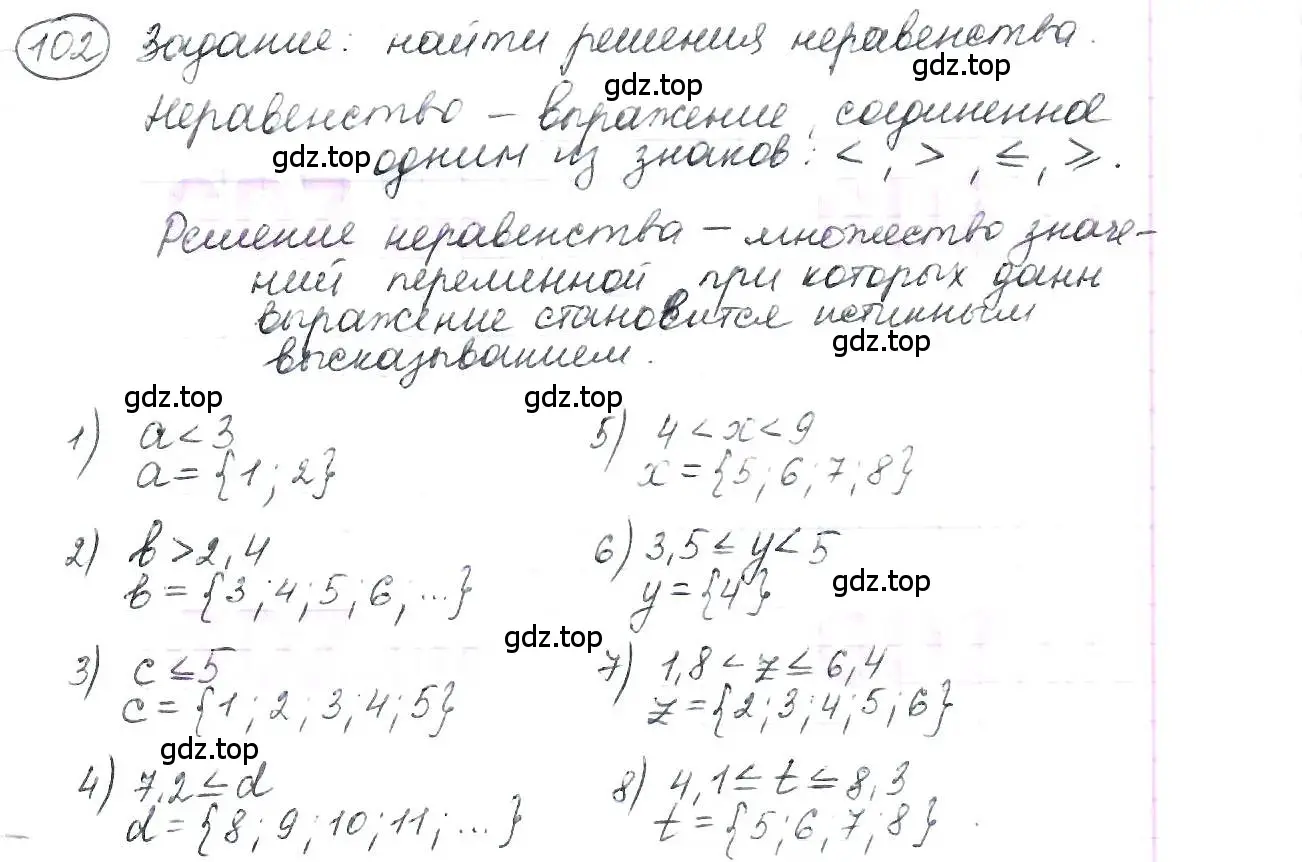 102 Задание: найти решения неравенства.
gdz.top gdz.top
Неравенство – выражение, соединенное
gdz.top одним из знаков: <, >, ≤, ≥.
Решение неравенства – множество значе-
ний переменной, при которых данн
выражение становится истинным
высказыванием. gdz.top
gdz.top gdz.top
1) a < 3
a = {1; 2}
2) b > 2,4
b = {3; 4; 5; 6; ...}
3) c ≤ 5
c = {1; 2; 3; 4; 5}
gdz.top
4) 7,2 ≤ d
d = {8; 9; 10; 11; ...}
5) 4 < x < 9
x = {5; 6; 7; 8}
6) 3,5 ≤ y < 5
y = {4} gdz.top
gdz.top
7) 1,8 < z ≤ 6,4
z = {2; 3; 4; 5; 6}
8) 4,1 ≤ t ≤ 8,3
t = {5; 6; 7; 8}.